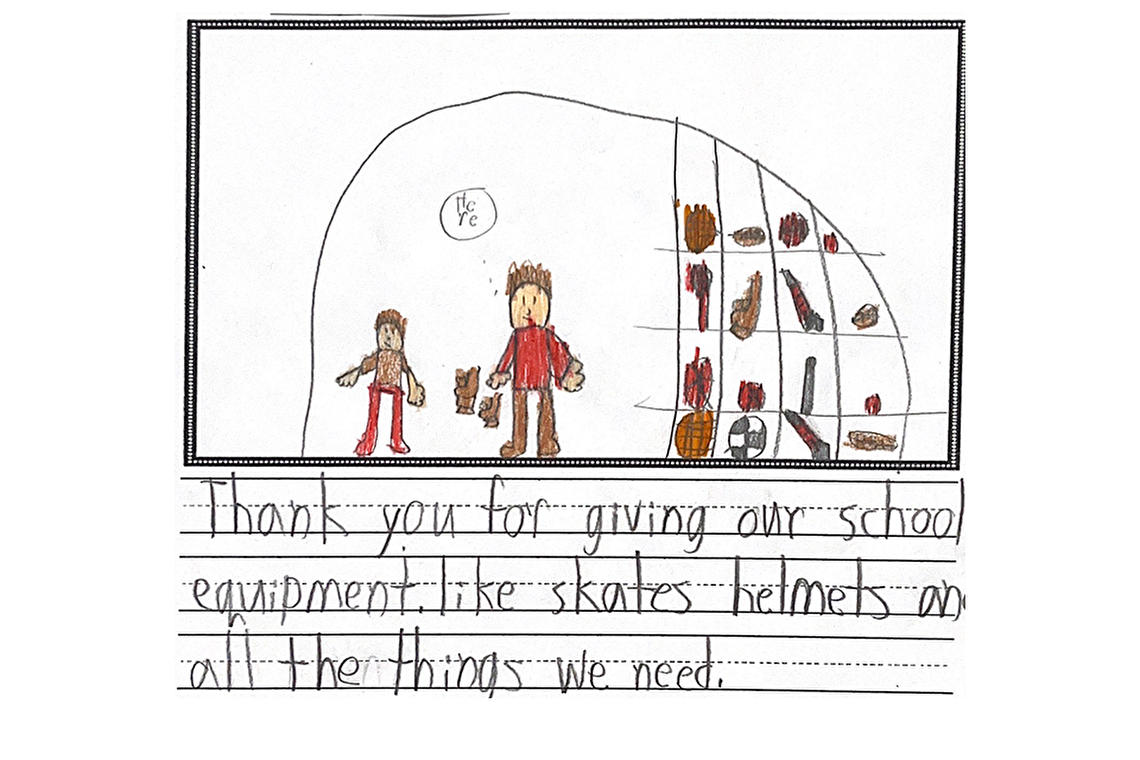 He
re
Thank you for giving our school
equipment. like skates helmets an
all the things we need.